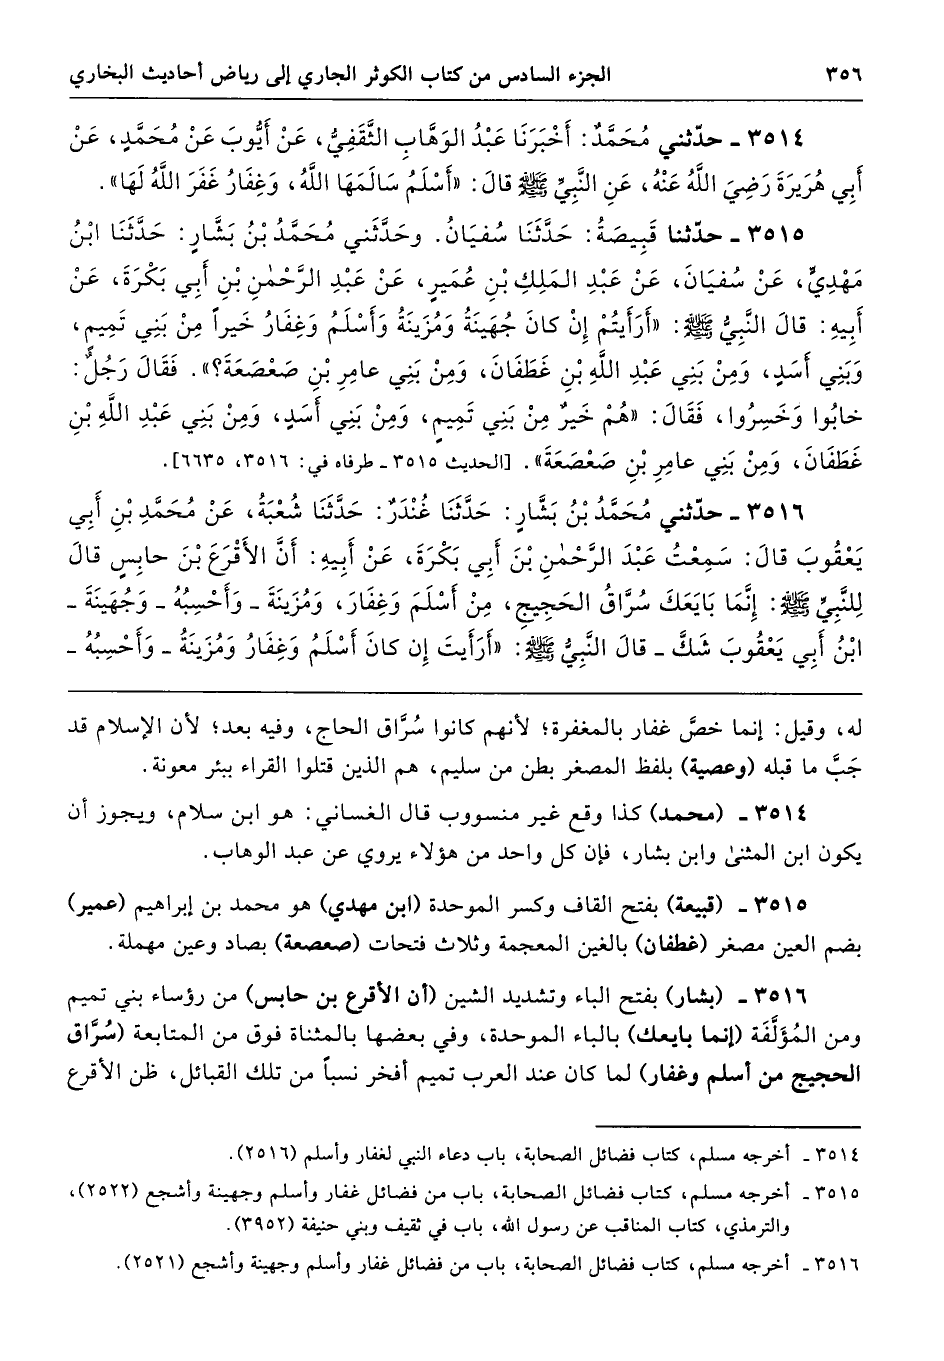 ٣٥٦ الجزء السادس من كتاب الكوثر الجاري إلى رياض أحاديث البخاري
٣٥١٤ ـ حدّثني مُحَمَّدٌ: أَخْبَرَنَا عَبْدُ الوَهَّابِ الثَّقَفِيُّ، عَنْ أَيُّوبَ عَنْ مُحَمَّدٍ، عَنْ
أَبِي هُرَيرَةَ رَضِيَ اللَّهُ عَنْهُ، عَنِ النَّبِيِّ ﷺ قالَ: «أَسْلَمُ سَالَمَهَا اللَّهُ، وَغِفَارُ غَفَرَ اللَّهُ لَهَا».
٣٥١٥ ـ حدّثنا قَبِيصَةُ: حَدَّثَنَا سُفيَانُ. وحَدَّثَني مُحَمَّدُ بْنُ بَشَّارٍ: حَدَّثَنَا ابْنُ
مَهْدِيٍّ، عَنْ سُفيَانَ، عَنْ عَبْدِ المَلِكِ بْنِ عُمَيرٍ، عَنْ عَبْدِ الرَّحْمٰنِ بْنِ أَبِي بَكْرَةَ، عَنْ
أَبِيهِ: قالَ النَّبِيُّ ﷺ: «أَرَأَيتُمْ إِنْ كانَ جُهَينَةُ وَمُزَينَةُ وَأَسْلَمُ وَغِفَارُ خَيراً مِنْ بَنِي تَمِيمٍ،
وَبَنِي أَسَدٍ، وَمِنْ بَنِي عَبْدِ اللَّهِ بْنِ غَطَفَانَ، وَمِنْ بَنِي عامِرِ بْنِ صَعْصَعَةَ؟». فَقَالَ رَجُلٌ:
خابُوا وَخَسِرُوا، فَقَالَ: «هُمْ خَيرٌ مِنْ بَنِي تَمِيمٍ، وَمِنْ بَنِي أَسَدٍ، وَمِنْ بَنِي عَبْدِ اللَّهِ بْنِ
غَطَفَانَ، وَمِنْ بَنِي عامِرِ بْنِ صَعْصَعَةَ». [الحديث ٣٥١٥ ـ طرفاه في: ٣٥١٦، ٦٦٣٥].
٣٥١٦ ـ حدّثني مُحَمَّدُ بْنُ بَشَّارٍ: حَدَّثَنَا غُنْدَرٌ: حَدَّثَنَا شُعْبَةُ، عَنْ مُحَمَّدِ بْنِ أَبِي
يَعْقُوبَ قالَ: سَمِعْتُ عَبْدَ الرَّحْمٰنِ بْنَ أَبِي بَكْرَةَ، عَنْ أَبِيهِ: أَنَّ الأَقْرَعَ بْنَ حابِسٍ قالَ
لِلنَّبِيِّ ﷺ: إِنَّمَا بَايَعَكَ سُرَّاقُ الحَجِيجِ، مِنْ أَسْلَمَ وَغِفَارَ، وَمُزَينَةَ ـ وَأَحْسِبُهُ ـ وَجُهَينَةَ ـ
ابْنُ أَبِي يَعْقُوبَ شَكَّ ـ قالَ النَّبِيُّ ﷺ: «أَرَأَيتَ إِن كانَ أَسْلَمُ وَغِفَارُ وَمُزَينَةُ ـ وَأَحْسِبُهُ ـ
له، وقيل: إنما خصَّ غفار بالمغفرة؛ لأنهم كانوا سُرَّاق الحاج، وفيه بعد؛ لأن الإسلام قد
جَبَّ ما قبله (وعصية) بلفظ المصغر بطن من سليم، هم الذين قتلوا القراء ببئر معونة.
٣٥١٤ ـ (محمد) كذا وقع غير منسووب قال الغساني: هو ابن سلام، ويجوز أن
يكون ابن المثنىٰ وابن بشار، فإن كل واحد من هؤلاء يروي عن عبد الوهاب.
٣٥١٥ ـ (قبيعة) بفتح القاف وكسر الموحدة (ابن مهدي) هو محمد بن إبراهيم (عمير)
بضم العين مصغر (غطفان) بالغين المعجمة وثلاث فتحات (صعصعة) بصاد وعين مهملة.
٣٥١٦ ـ (بشار) بفتح الباء وتشديد الشين (أن الأقرع بن حابس) من رؤساء بني تميم
ومن المُؤَلَّفَة (إنما بايعك) بالباء الموحدة، وفي بعضها بالمثناة فوق من المتابعة (سُرَّاق
الحجيج من أسلم وغفار) لما كان عند العرب تميم أفخر نسباً من تلك القبائل، ظن الأقرع
٣٥١٤ ـ أخرجه مسلم، كتاب فضائل الصحابة، باب دعاء النبي لغفار وأسلم (٢٥١٦).
٣٥١٥ ـ أخرجه مسلم، كتاب فضائل الصحابة، باب من فضائل غفار وأسلم وجهينة وأشجع (٢٥٢٢)،
والترمذي، كتاب المناقب عن رسول الله، باب في ثقيف وبني حنيفة (٣٩٥٢).
٣٥١٦ ـ أخرجه مسلم، كتاب فضائل الصحابة، باب من فضائل غفار وأسلم وجهينة وأشجع (٢٥٢١).